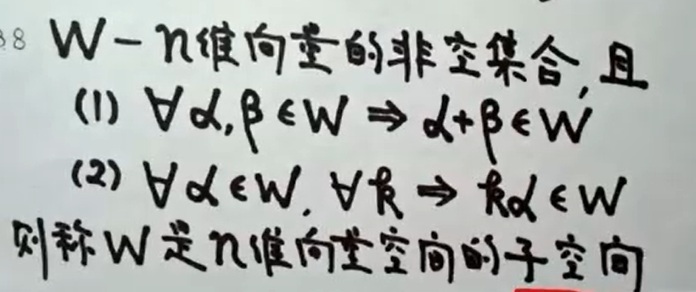 38 W - n维向量的非空集合,且
(1) ∀α,β∈W ⇒ α+β∈W
(2) ∀α∈W, ∀k ⇒ kα∈W
则称W是n维向量空间的子空间